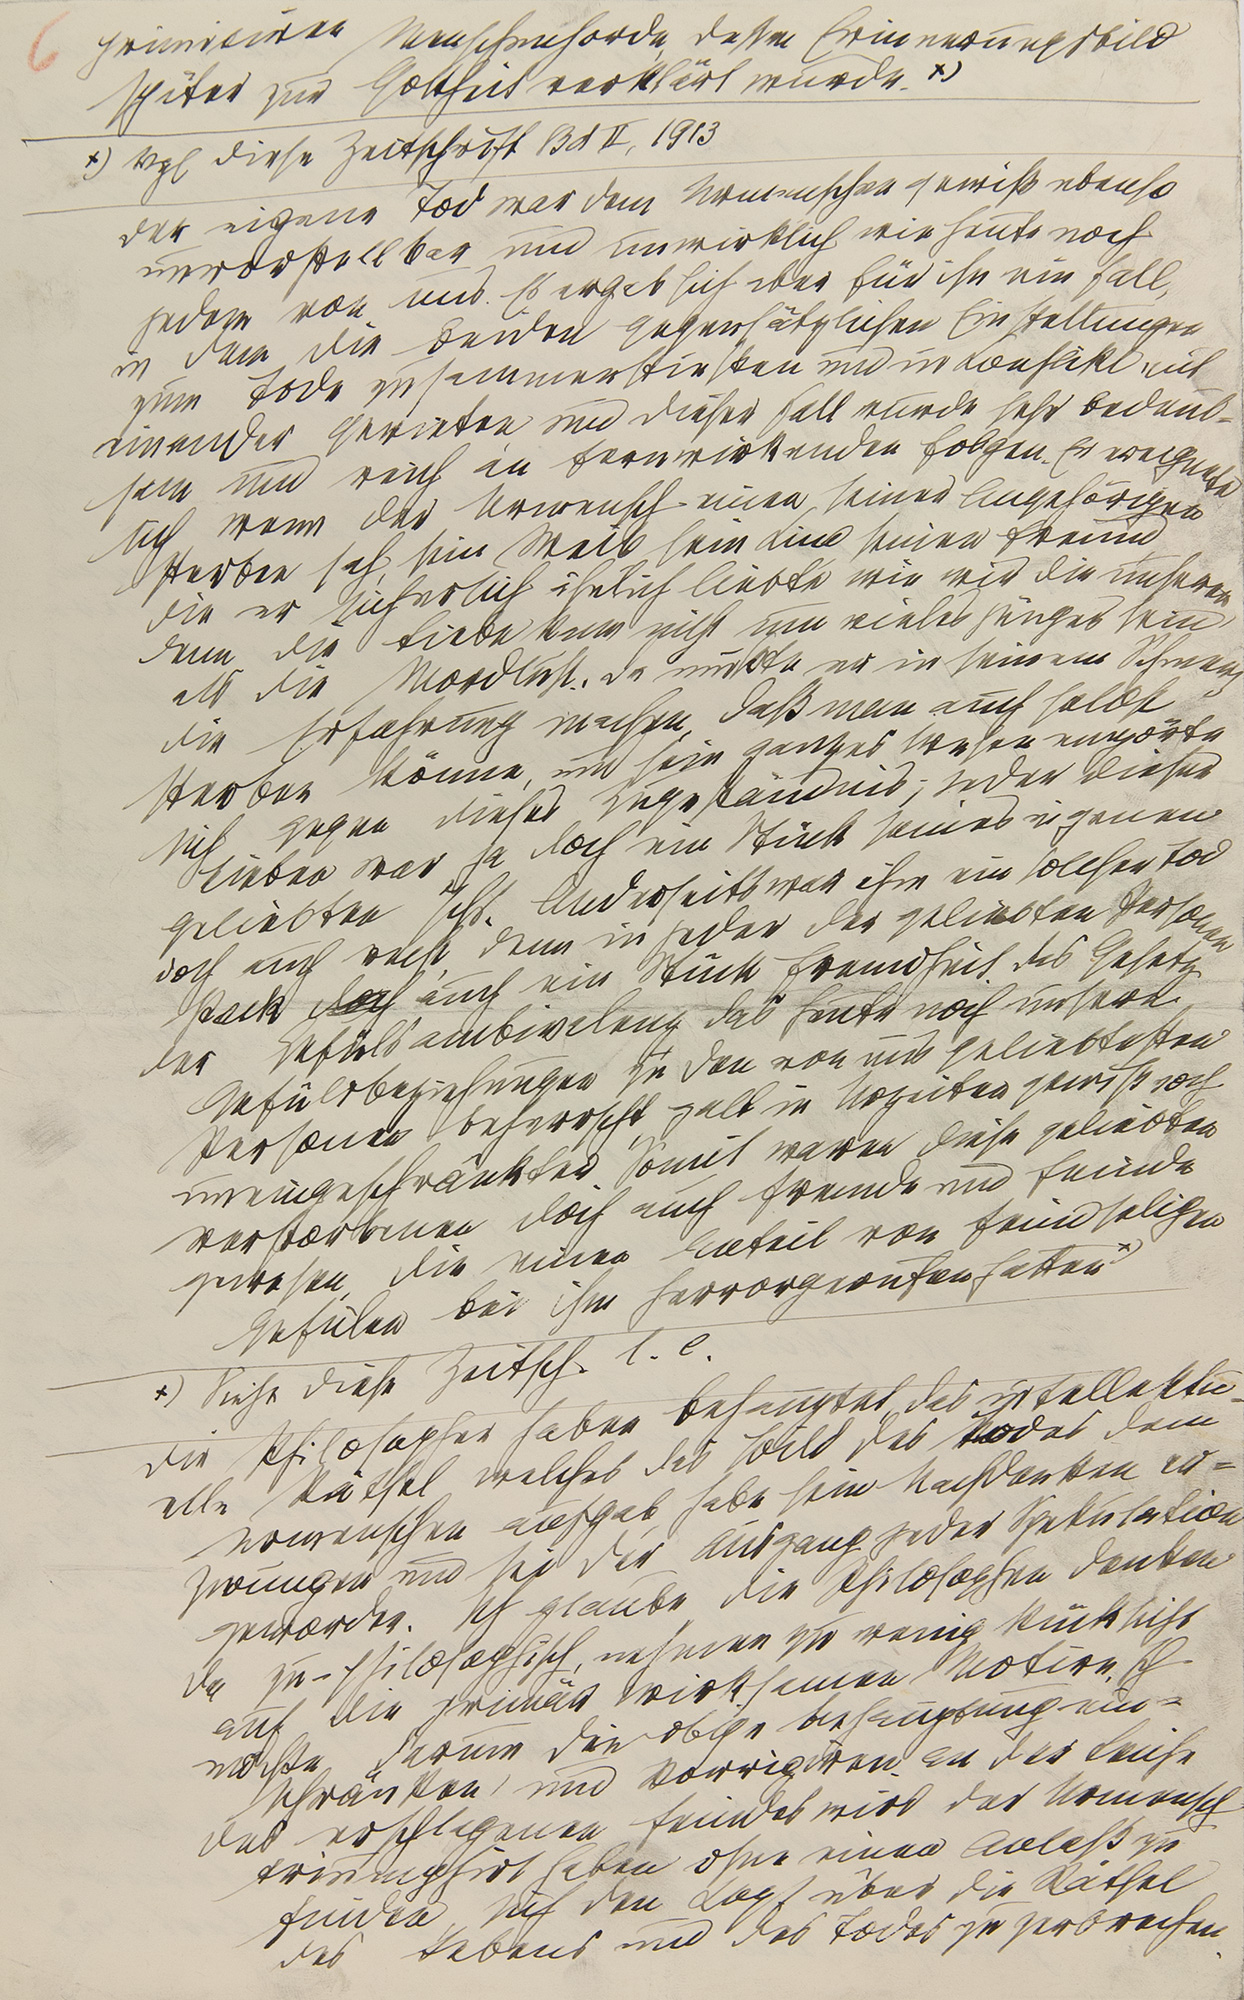 6
primitiven Menschenhorde, dessen Erinnerungsbild
später zur Gottheit verklärt wurde. x)
x) Vgl diese Zeitschrift Bd II, 1913
Der eigene Tod war dem Urmenschen gewiß ebenso
unvorstellbar und unwirklich wie heute noch
jedem von uns. Es ergab sich aber für ihn ein Fall,
in dem die beiden gegensätzlichen Einstellungen
zum Tode zusammenstießen und in Konflikt mit
einander gerieten und dieser Fall wurde sehr bedeut-
sam und reich an fernwirkenden Folgen. Er ereignete
sich wenn der Urmensch einen seiner Angehörigen
sterben sah, sein Weib sein Kind seinen Freund,
die er sicherlich ähnlich liebte wie wir die unseren
denn die Liebe kann nicht um vieles jünger sein
als die Mordlust. Da mußte er in seinem Schmerz
die Erfahrung machen, daß man auch selbst
sterben könne, und sein ganzes Wesen empörte
sich gegen dieses Zugeständnis; jeder dieser
Lieben war ja doch ein Stück seines eigenen
geliebten Ichs. Anderseits war ihm ein solcher Tod
doch auch recht, denn in jeder der geliebten Personen
stack auch ein Stück Fremdheit. Das Gesetz
der Gefühlsambivalenz, das heute noch unsere
Gefühlsbeziehungen zu den von uns geliebtesten
Personen beherrscht, galt in Urzeiten gewiß noch
uneingeschränkter. Somit waren diese geliebten
Verstorbenen doch auch Fremde und Feinde
gewesen, die einen Anteil von feindseligen
Gefühlen bei ihm hervorgerufen hatten x)
x) Siehe diese Zeitsch. l. c.
Die Philosophen haben behauptet, das intellektu-
elle Rätsel, welches das Bild des Todes dem
Urmenschen aufgab, habe sein Nachdenken er=
zwungen und sei der Ausgang jeder Spekulation
geworden. Ich glaube, die Philosophen denken
da zu philosophisch, nehmen zu wenig Rücksicht
auf die primär wirksamen Motive. Ich
möchte darum die obige Behauptung ein=
schränken und korrigiren. An der Leiche
des erschlagenen Feindes wird der Urmensch
triumphirt haben ohne einen Anlaß zu
finden, sich den Kopf über die Rätsel
des Lebens und des Todes zu zerbrechen.